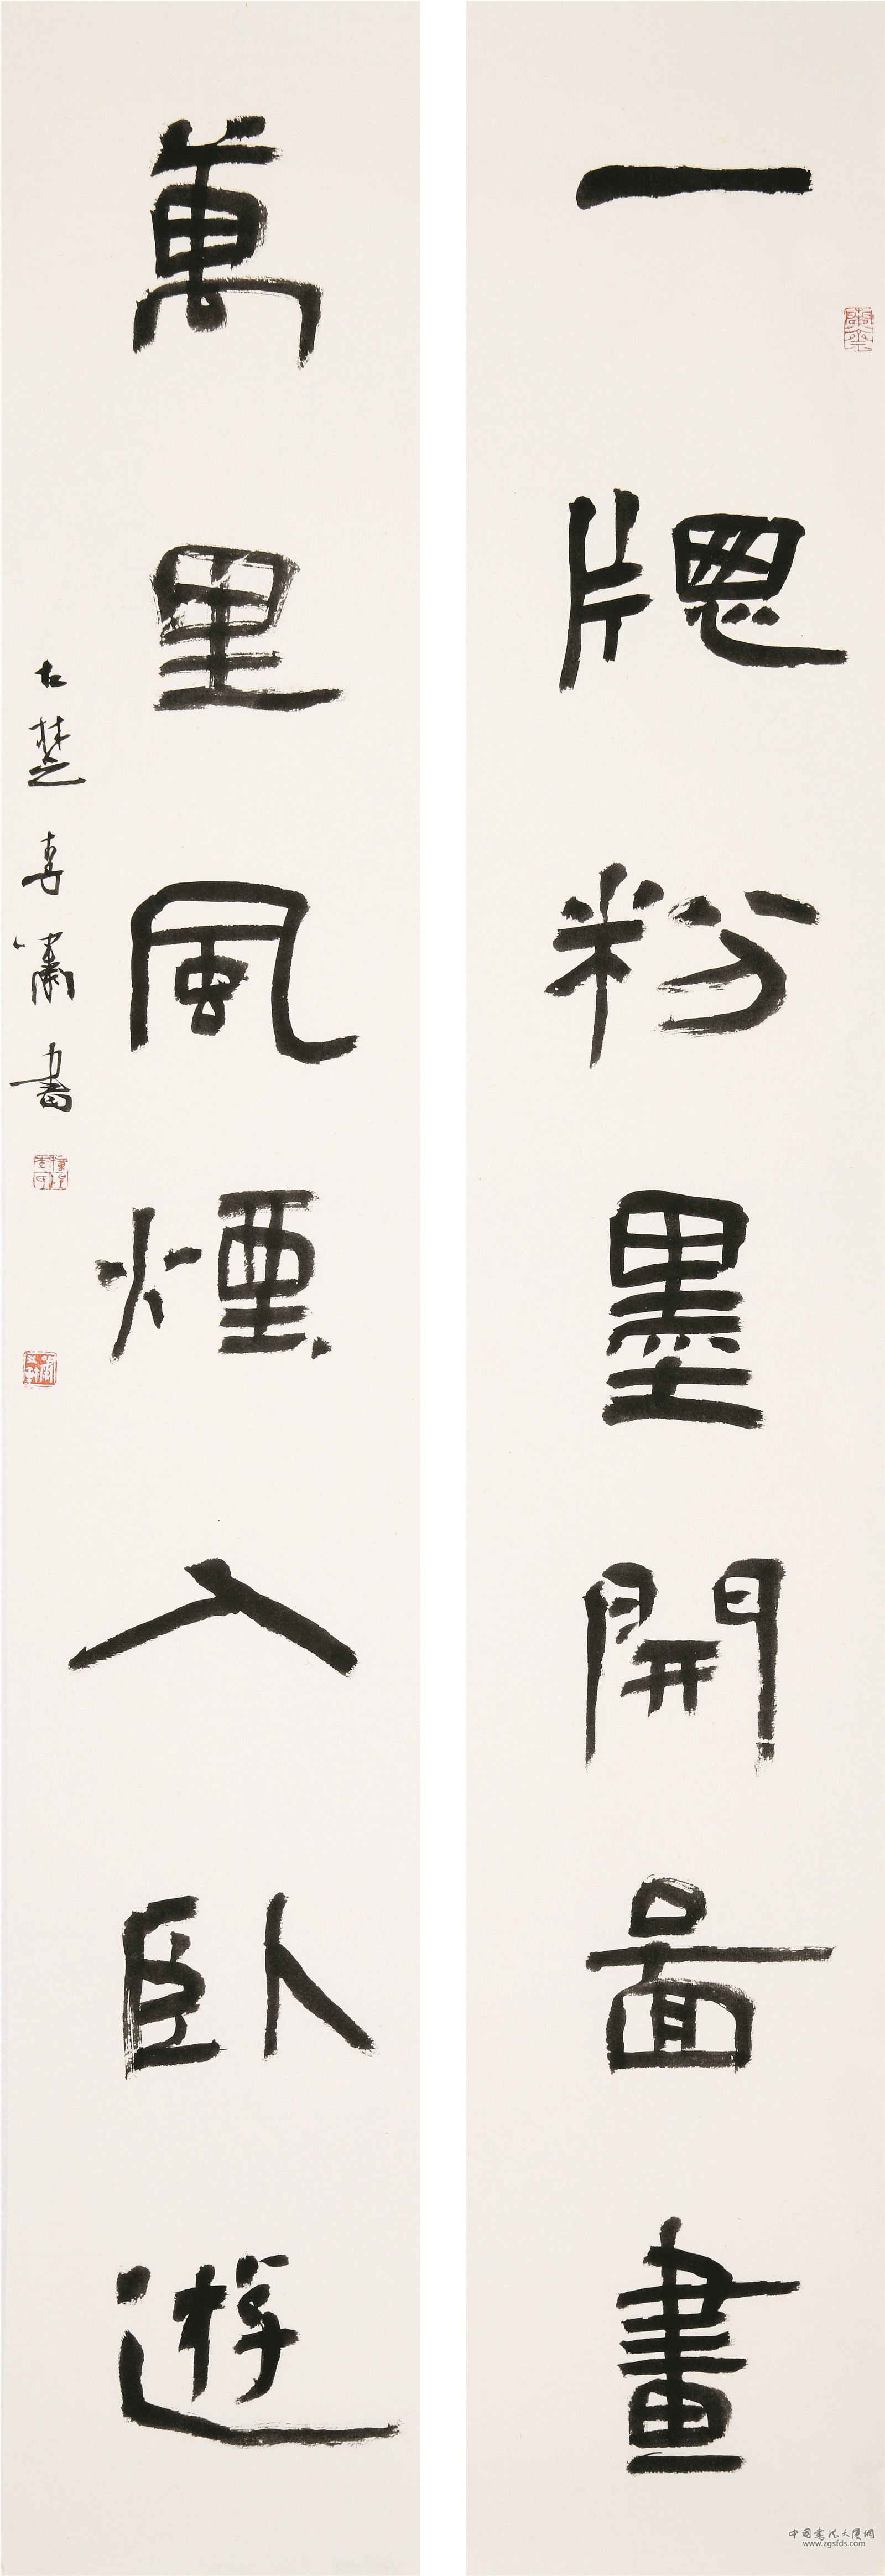 一牕粉墨開圖畫
萬里風煙入臥遊
古楚李嘯書
中國書法大厦網
www.zgsfds.com